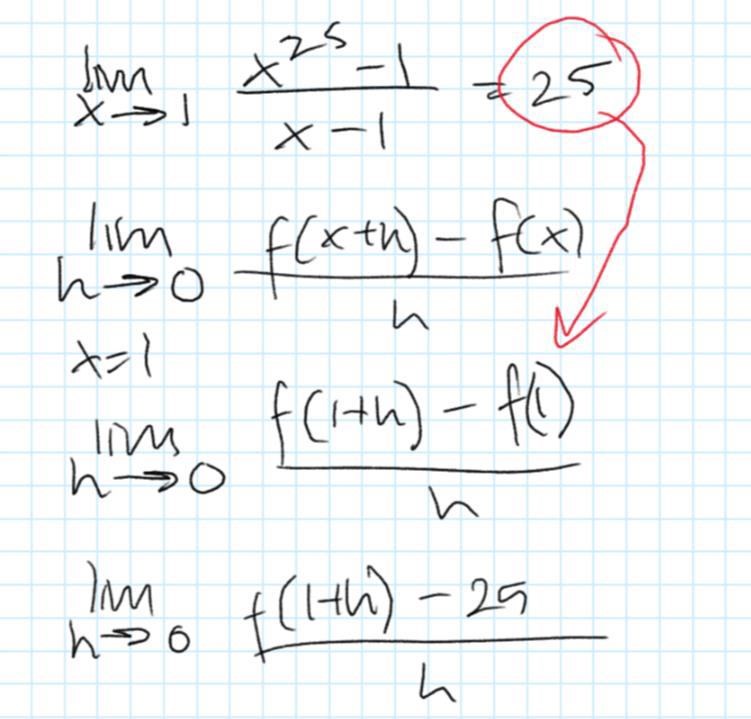 lim x→1 (x^25 - 1)/(x - 1) = 25
lim h→0 (f(x+h) - f(x))/h
x=1
lim h→0 (f(1+h) - f(1))/h
lim h→0 (f(1+h) - 25)/h